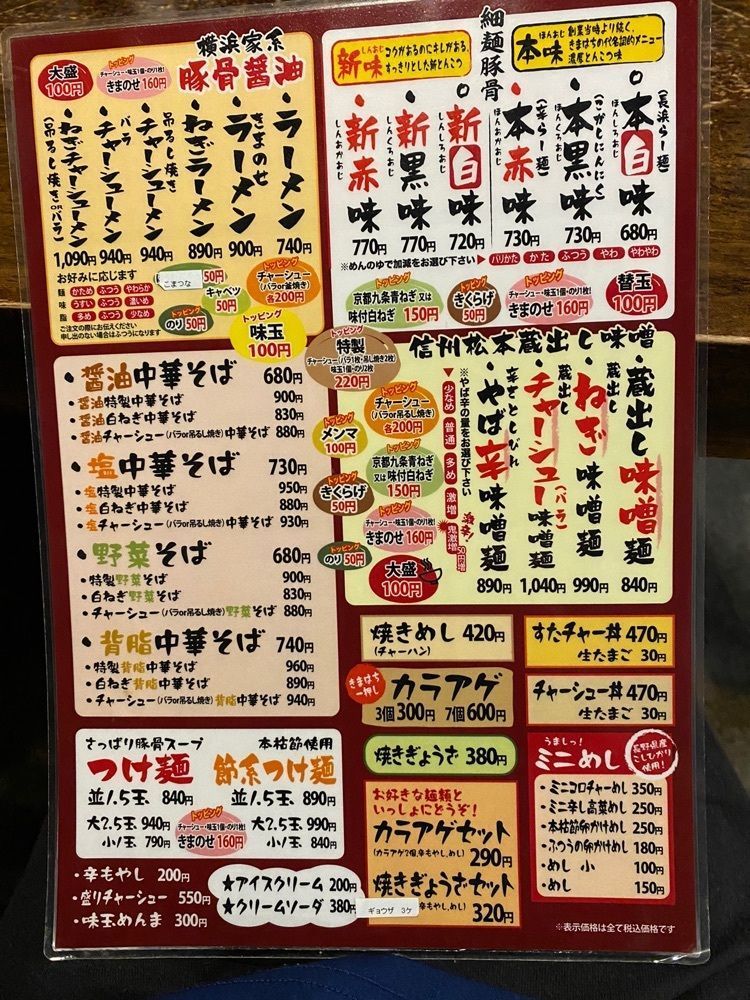 横浜家系
豚骨醤油
大盛
100円
トッピング
チャーシュー・味玉1個・のり1枚!
きまのせ 160円
・ラーメン 740円
・きまのせラーメン 900円
・ねぎラーメン 890円
・チャーシューメン(吊るし焼き) 940円
・チャーシューメン バラ 940円
・ねぎチャーシューメン(吊るし焼きorバラ) 1,090円
お好みに応じます
麺 かため ふつう やわらか
味 うすい ふつう 濃いめ
脂 多め ふつう 少なめ
ご注文の際にお伝えください
申し出のない場合はふつうになります
こまつな 50円
トッピング
キャベツ
50円
トッピング
チャーシュー
(バラor釜焼き)
各200円
トッピング
のり 50円
トッピング
味玉
100円
細麺豚骨
新味
しんあじ
コクがあるのにキレがある、
すっきりとした新とんこつ
本味
ほんあじ
創業当時より続く、
きまはちの代名詞的メニュー
濃厚とんこつ味
本白味 ほんしろあじ (長浜らー麺) 680円
・本黒味 ほんくろあじ (こがしにんにく) 730円
・本赤味 ほんあかあじ (辛らー麺) 730円
新白味 しんしろあじ 720円
・新黒味 しんくろあじ 770円
・新赤味 しんあかあじ 770円
※めんのゆで加減をお選び下さい▶ バリかた かた ふつう やわ やわやわ
トッピング
京都九条青ねぎ又は
味付白ねぎ 150円
トッピング
きくらげ
50円
トッピング
チャーシュー・味玉1個・のり1枚!
きまのせ 160円
替玉
100円
・醤油中華そば 680円
・醤油特製中華そば 900円
・醤油白ねぎ中華そば 830円
・醤油チャーシュー(バラor吊るし焼き)中華そば 880円
・塩中華そば 730円
・塩特製中華そば 950円
・塩白ねぎ中華そば 880円
・塩チャーシュー(バラor吊るし焼き)中華そば 930円
・野菜そば 680円
・特製野菜そば 900円
・白ねぎ野菜そば 830円
・チャーシュー(バラor吊るし焼き)野菜そば 880円
・背脂中華そば 740円
・特製背脂中華そば 960円
・白ねぎ背脂中華そば 890円
・チャーシュー(バラor吊るし焼き)背脂中華そば 940円
トッピング
特製
チャーシュー(バラ1枚・吊し焼き2枚)
味玉1個・のり2枚
220円
トッピング
チャーシュー
(バラor吊るし焼き)
各200円
トッピング
メンマ
100円
トッピング
京都九条青ねぎ
又は味付白ねぎ
150円
トッピング
きくらげ
50円
トッピング
チャーシュー・味玉1個・のり1枚!
きまのせ 160円
トッピング
のり 50円
大盛
100円
信州松本蔵出し味噌
・蔵出し味噌麺 840円
・蔵出しねぎ味噌麺 990円
・蔵出しチャーシュー(バラ)味噌麺 1,040円
・辛さとしびれ やば辛味噌麺 890円
※やば辛の量をお選び下さい
▼少なめ 普通 多め 激増 鬼激増 50円増
激辛!
焼きめし 420円
(チャーハン)
すたチャー丼 470円
生たまご 30円
きまはち
一押し
カラアゲ
3個 300円 7個 600円
チャーシュー丼 470円
生たまご 30円
焼きぎょうざ 380円
お好きな麺類と
いっしょにどうぞ!
カラアゲセット
(カラアゲ2個、辛もやし、めし)
290円
焼きぎょうざセット
ギョウザ 3ケ
、辛もやし、めし)
320円
うましっ!
ミニめし
長野県産
こしひかり
使用!
・ミニコロチャーめし 350円
・ミニ辛し高菜めし 250円
・本枯節卵かけめし 250円
・ふつうの卵かけめし 180円
・めし 小 100円
・めし 150円
さっぱり豚骨スープ
つけ麺
並1.5玉 840円
大2.5玉 940円
小1玉 790円
本枯節使用
節系つけ麺
並1.5玉 890円
大2.5玉 990円
小1玉 840円
トッピング
チャーシュー・味玉1個・のり1枚!
きまのせ 160円
・辛もやし 200円
・盛りチャーシュー 550円
・味玉めんま 300円
★アイスクリーム 200円
★クリームソーダ 380円
※表示価格は全て税込価格です